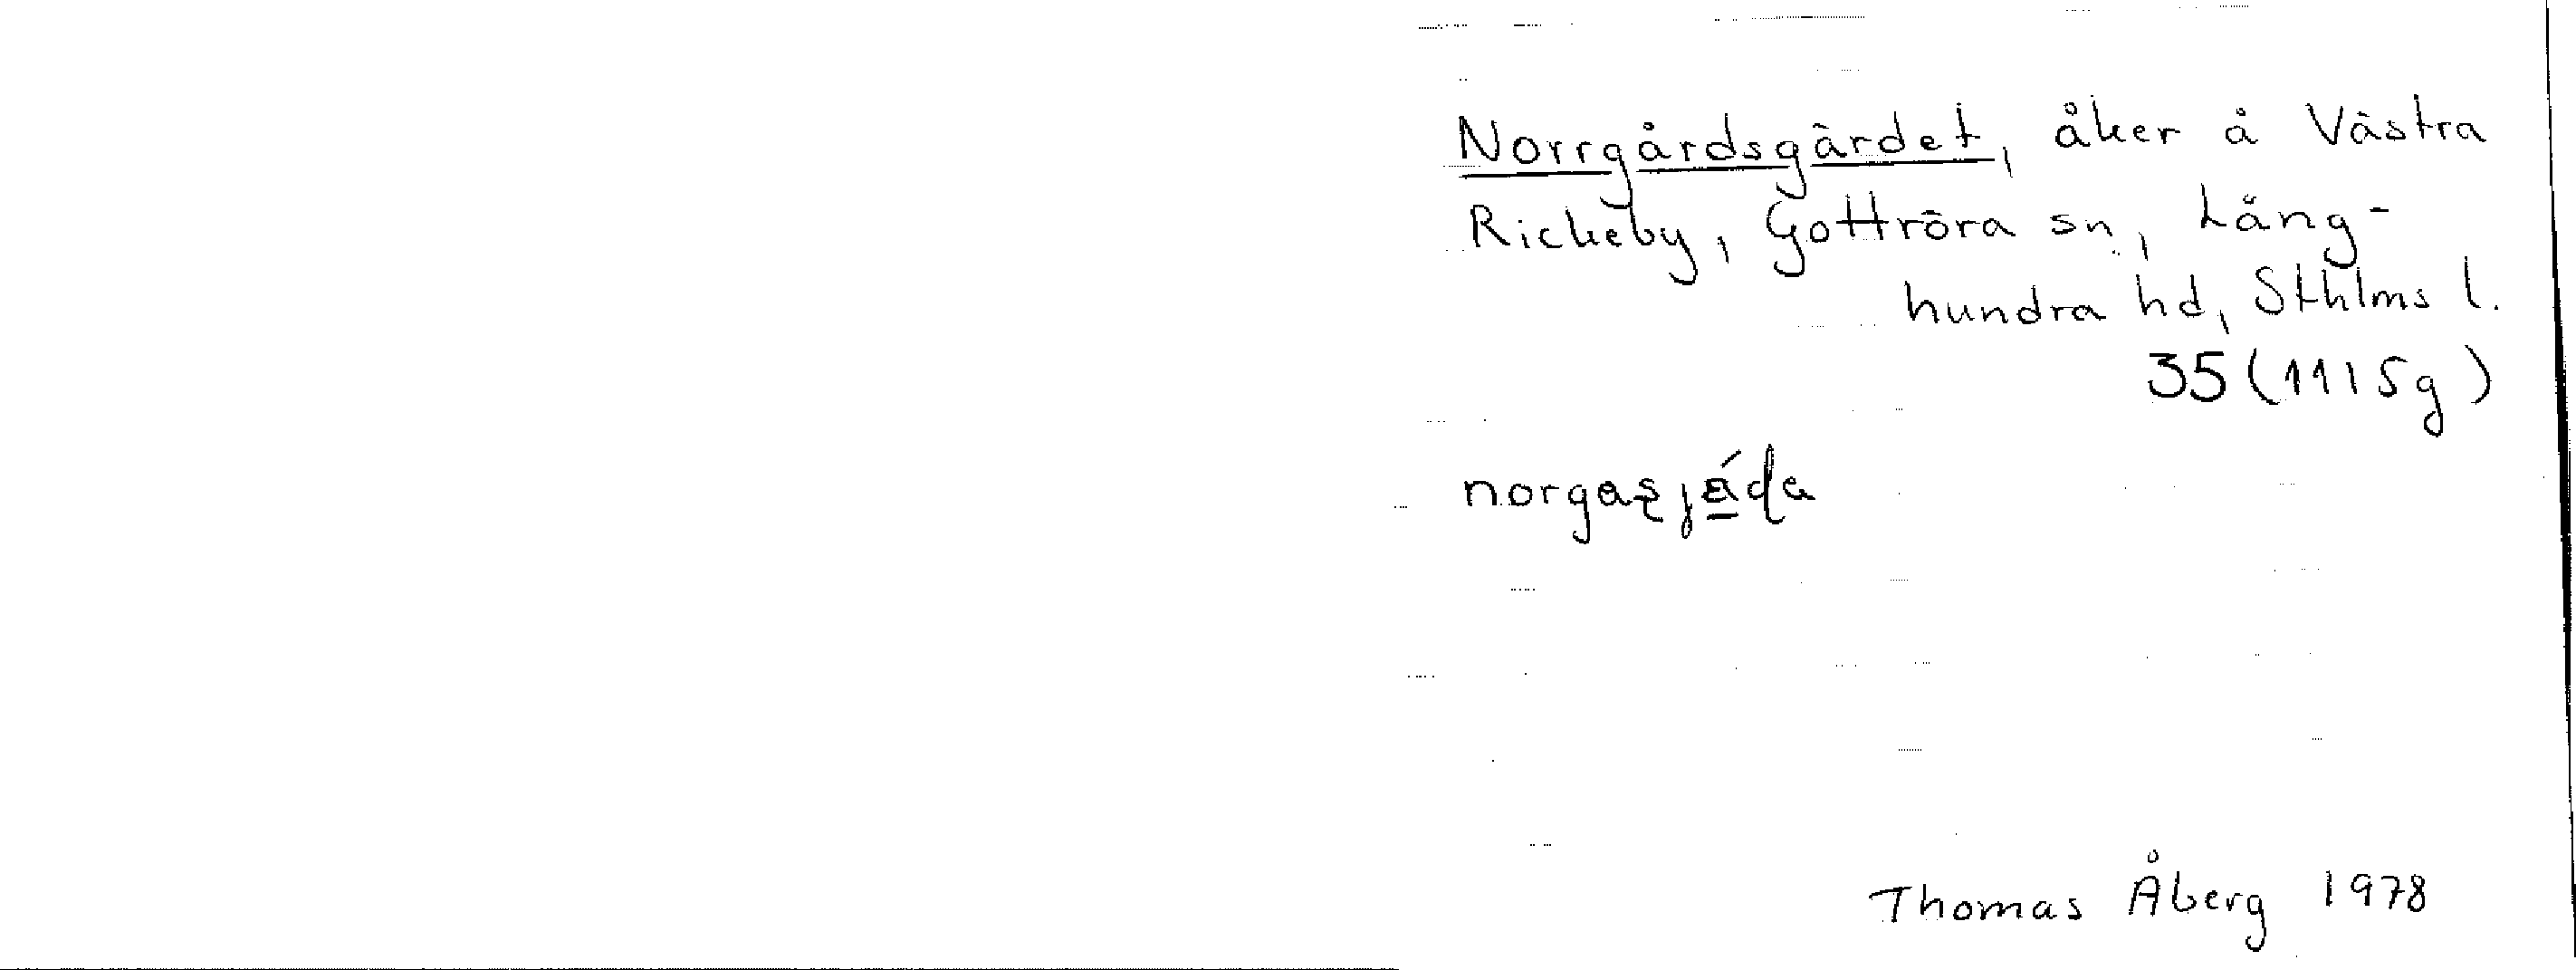 Norrgårdsgärdet, åker å Västra
Rickeby, Gottröra sn, Lång-
hundra hd, Sthlms l.
35 (1115g)
Thomas Åberg 1978